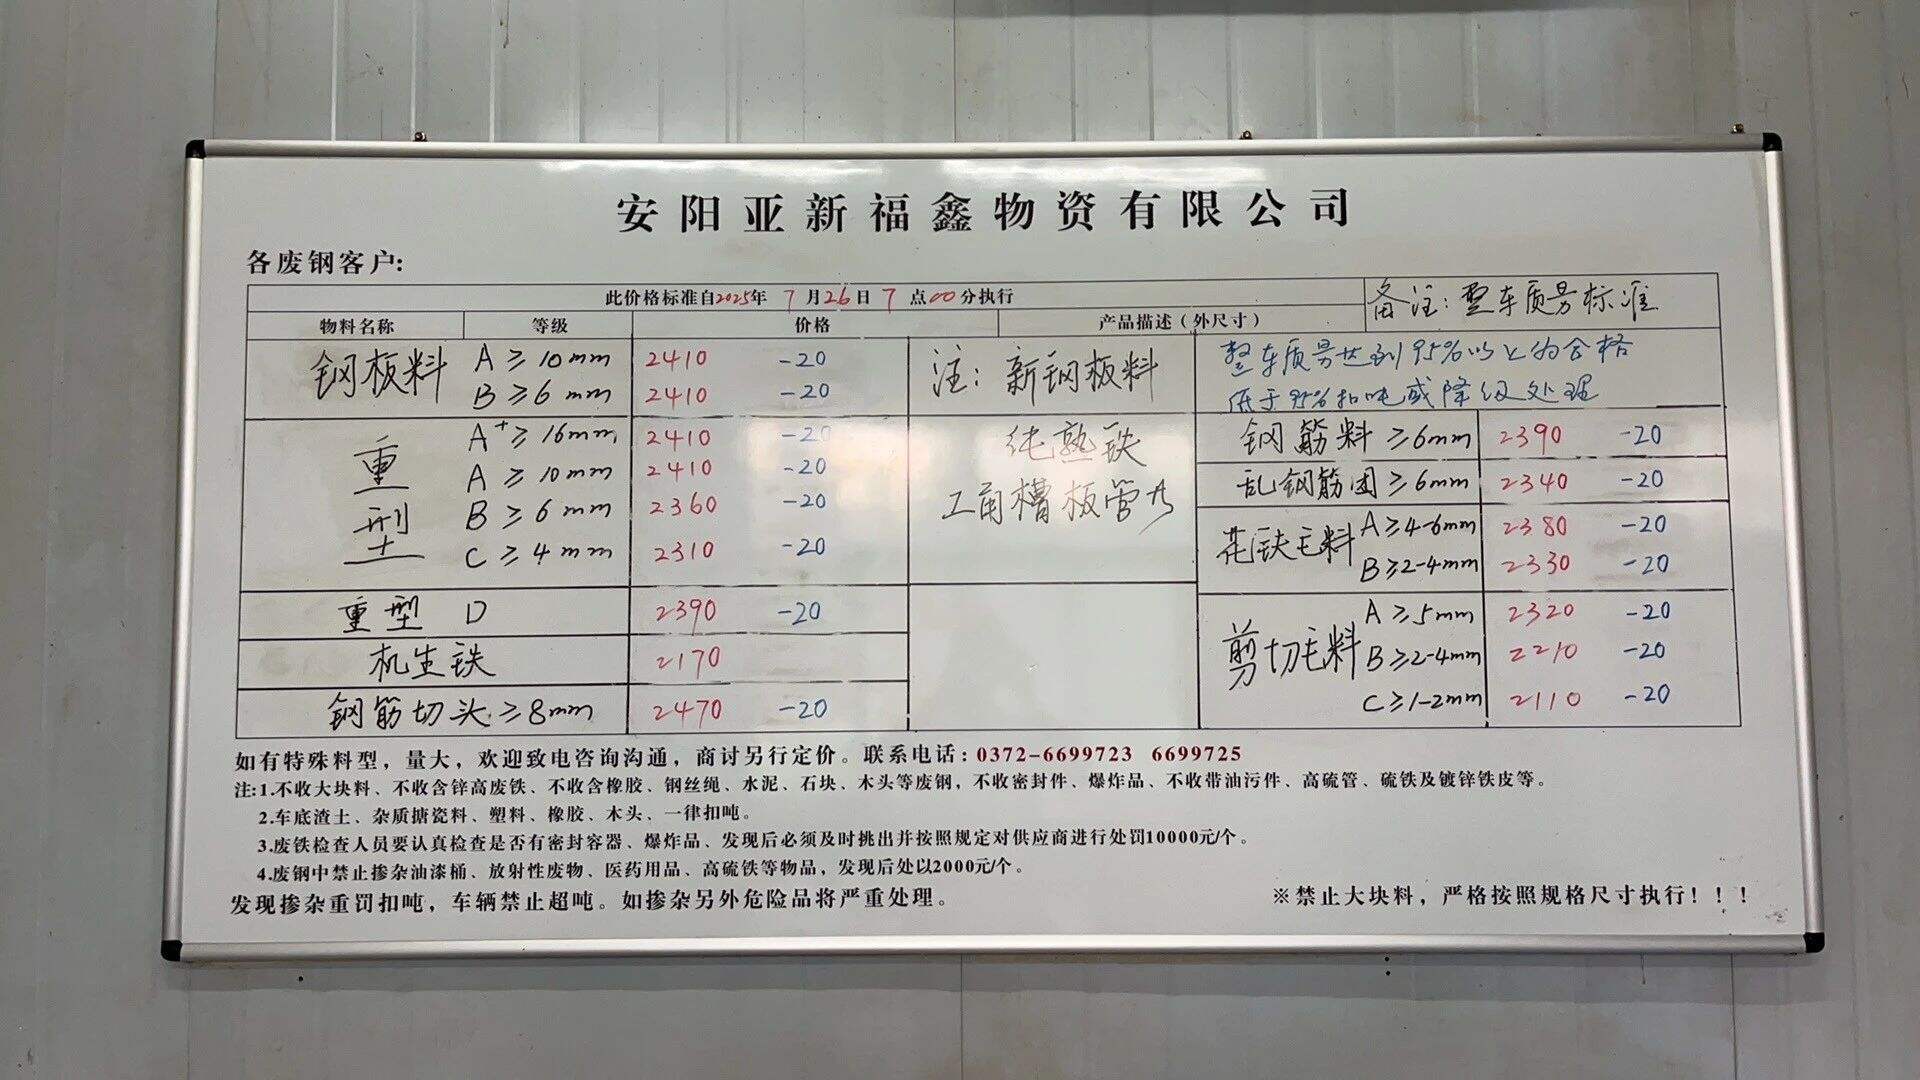 安阳亚新福鑫物资有限公司
各废钢客户:
此价格标准自2025年 7月26日 7点00分执行
备注:整车质量标准
物料名称 等级 价格 产品描述(外尺寸)
钢板料 A≥10mm 2410 -20
B≥6mm 2410 -20
注:新钢板料
整车质量达到95%以上为合格
低于95%扣吨或降级处理
重型 A+≥16mm 2410 -20
A≥10mm 2410 -20
B≥6mm 2360 -20
C≥4mm 2310 -20
纯熟铁
工角槽板管
重型 D 2390 -20
机生铁 2170
钢筋切头≥8mm 2470 -20
钢筋料≥6mm 2390 -20
乱钢筋团≥6mm 2340 -20
花铁毛料 A≥4-6mm 2380 -20
B≥2-4mm 2330 -20
剪切毛料 A≥5mm 2320 -20
B≥2-4mm 2210 -20
C≥1-2mm 2110 -20
如有特殊料型，量大，欢迎致电咨询沟通，商讨另行定价。联系电话:0372-6699723 6699725
注:1.不收大块料、不收含锌高废铁、不收含橡胶、钢丝绳、水泥、石块、木头等废钢，不收密封件、爆炸品、不收带油污件、高硫管、硫铁及镀锌铁皮等。
2.车底渣土、杂质搪瓷料、塑料、橡胶、木头、一律扣吨。
3.废铁检查人员要认真检查是否有密封容器、爆炸品、发现后必须及时挑出并按照规定对供应商进行处罚10000元/个。
4.废钢中禁止掺杂油漆桶、放射性废物、医药用品、高硫铁等物品，发现后处以2000元/个。
发现掺杂重罚扣吨，车辆禁止超吨。如掺杂另外危险品将严重处理。
※禁止大块料，严格按照规格尺寸执行！！！